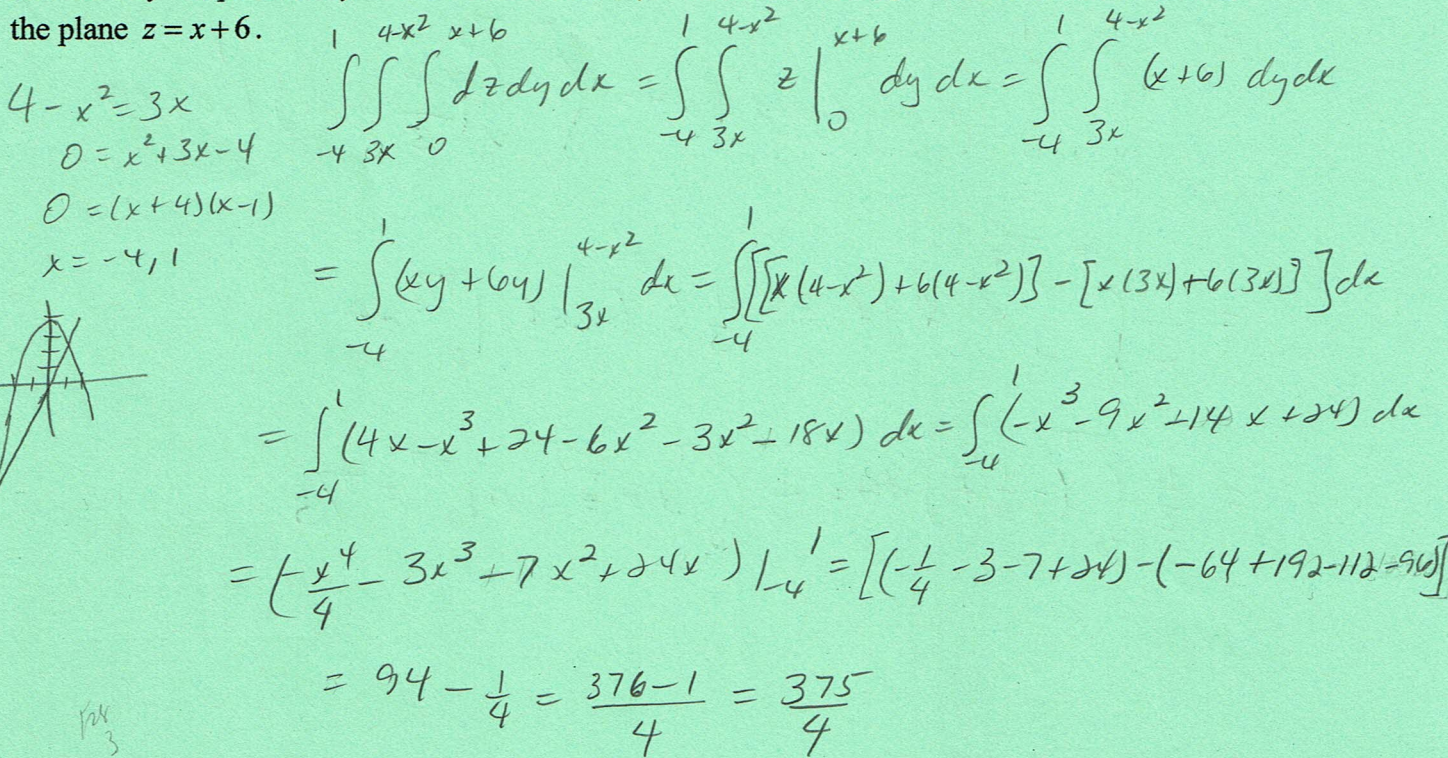 the plane z = x + 6.
∫_{-4}^{1} ∫_{3x}^{4-x²} ∫_{0}^{x+6} dz dy dx = ∫_{-4}^{1} ∫_{3x}^{4-x²} z |_{0}^{x+6} dy dx = ∫_{-4}^{1} ∫_{3x}^{4-x²} (x+6) dy dx
4 - x² = 3x
0 = x² + 3x - 4
0 = (x+4)(x-1)
x = -4, 1
= ∫_{-4}^{1} (xy + 6y) |_{3x}^{4-x²} dx = ∫_{-4}^{1} [[x(4-x²) + 6(4-x²)] - [x(3x) + 6(3x)]] dx
= ∫_{-4}^{1} (4x - x³ + 24 - 6x² - 3x² - 18x) dx = ∫_{-4}^{1} (-x³ - 9x² - 14x + 24) dx
= (-x⁴/4 - 3x³ - 7x² + 24x) |_{-4}^{1} = [(-1/4 - 3 - 7 + 24) - (-64 + 192 - 112 - 96)]
= 94 - 1/4 = (376-1)/4 = 375/4